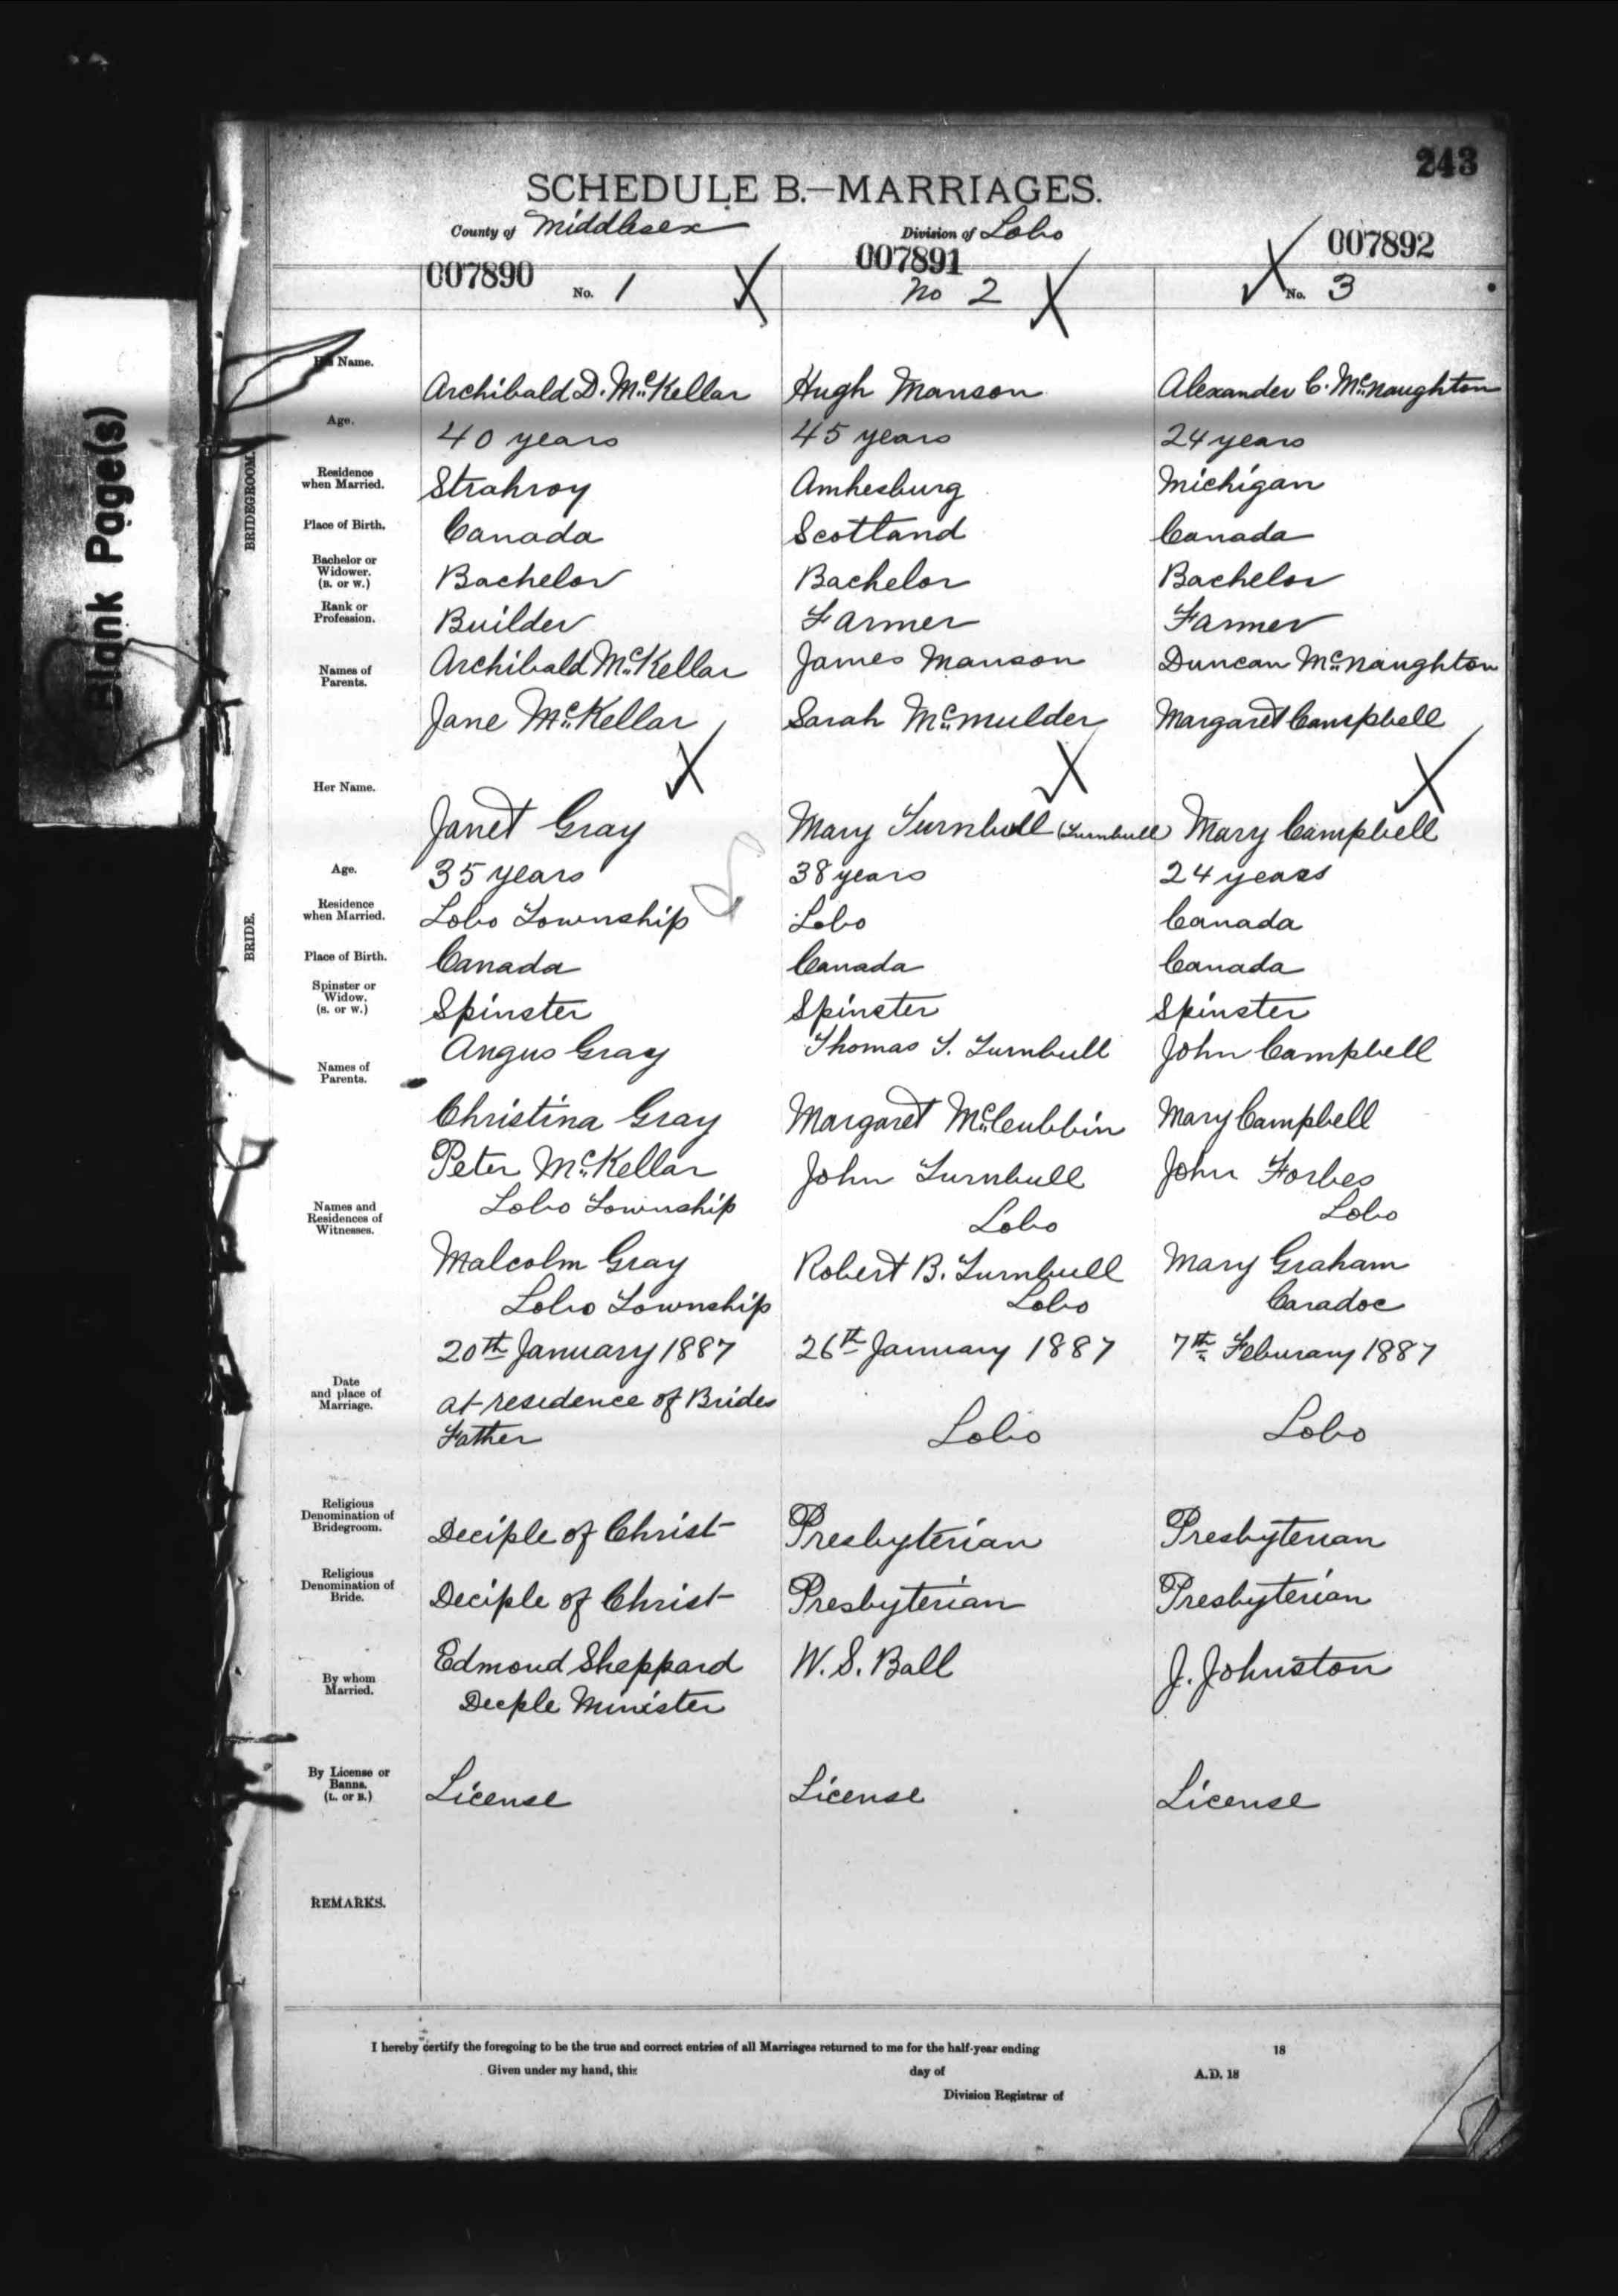 Blank Page(s)
243
SCHEDULE B.—MARRIAGES.
County of Middlesex Division of Lobo
007890 007891 007892
No. 1 No 2 No. 3
BRIDEGROOM.
Name. Archibald D. McKellar Hugh Manson Alexander C. McNaughton
Age. 40 years 45 years 24 years
Residence when Married. Strahroy Amhesburg Michigan
Place of Birth. Canada Scotland Canada
Bachelor or Widower. (B. or W.) Bachelor Bachelor Bachelor
Rank or Profession. Builder Farmer Farmer
Names of Parents. Archibald McKellar James Manson Duncan McNaughton
Jane McKellar Sarah McMulder Margaret Campbell
BRIDE.
Her Name. Janet Gray Mary Turnbull (Turnbull) Mary Campbell
Age. 35 years 38 years 24 years
Residence when Married. Lobo Township Lobo Canada
Place of Birth. Canada Canada Canada
Spinster or Widow. (S. or W.) Spinster Spinster Spinster
Names of Parents. Angus Gray Thomas T. Turnbull John Campbell
Christina Gray Margaret McCubbin Mary Campbell
Names and Residences of Witnesses. Peter McKellar John Turnbull John Forbes
Lobo Township Lobo Lobo
Malcolm Gray Robert B. Turnbull Mary Graham
Lobo Township Lobo Caradoc
Date and place of Marriage. 20th January 1887 26th January 1887 7th Feburary 1887
at residence of Brides Father Lobo Lobo
Religious Denomination of Bridegroom. Deciple of Christ Presbyterian Presbyterian
Religious Denomination of Bride. Deciple of Christ Presbyterian Presbyterian
By whom Married. Edmond Sheppard W. S. Ball J. Johnston
Deciple Minister
By License or Banns. (L. or B.) License License License
REMARKS.
I hereby certify the foregoing to be the true and correct entries of all Marriages returned to me for the half-year ending 18
Given under my hand, this day of A.D. 18
Division Registrar of